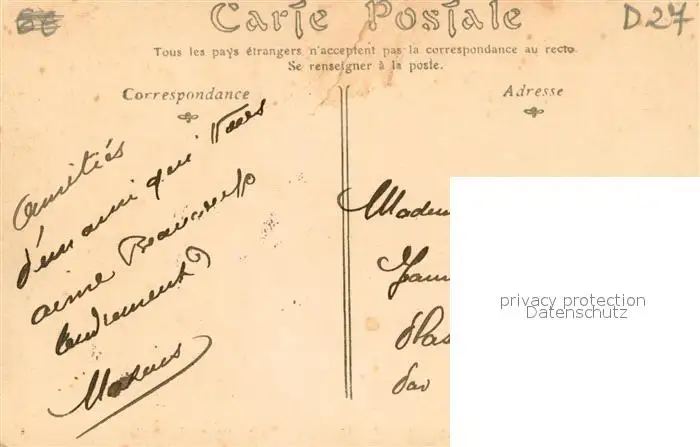 Carte Postale
D27
Tous les pays étrangers n'acceptent pas la correspondance au recto.
Se renseigner à la poste.
Correspondance
Adresse
Amitiés
d'un ami qui vous
aime Beaucoup
tendrement
Marius
Madem
privacy protection
Datenschutz